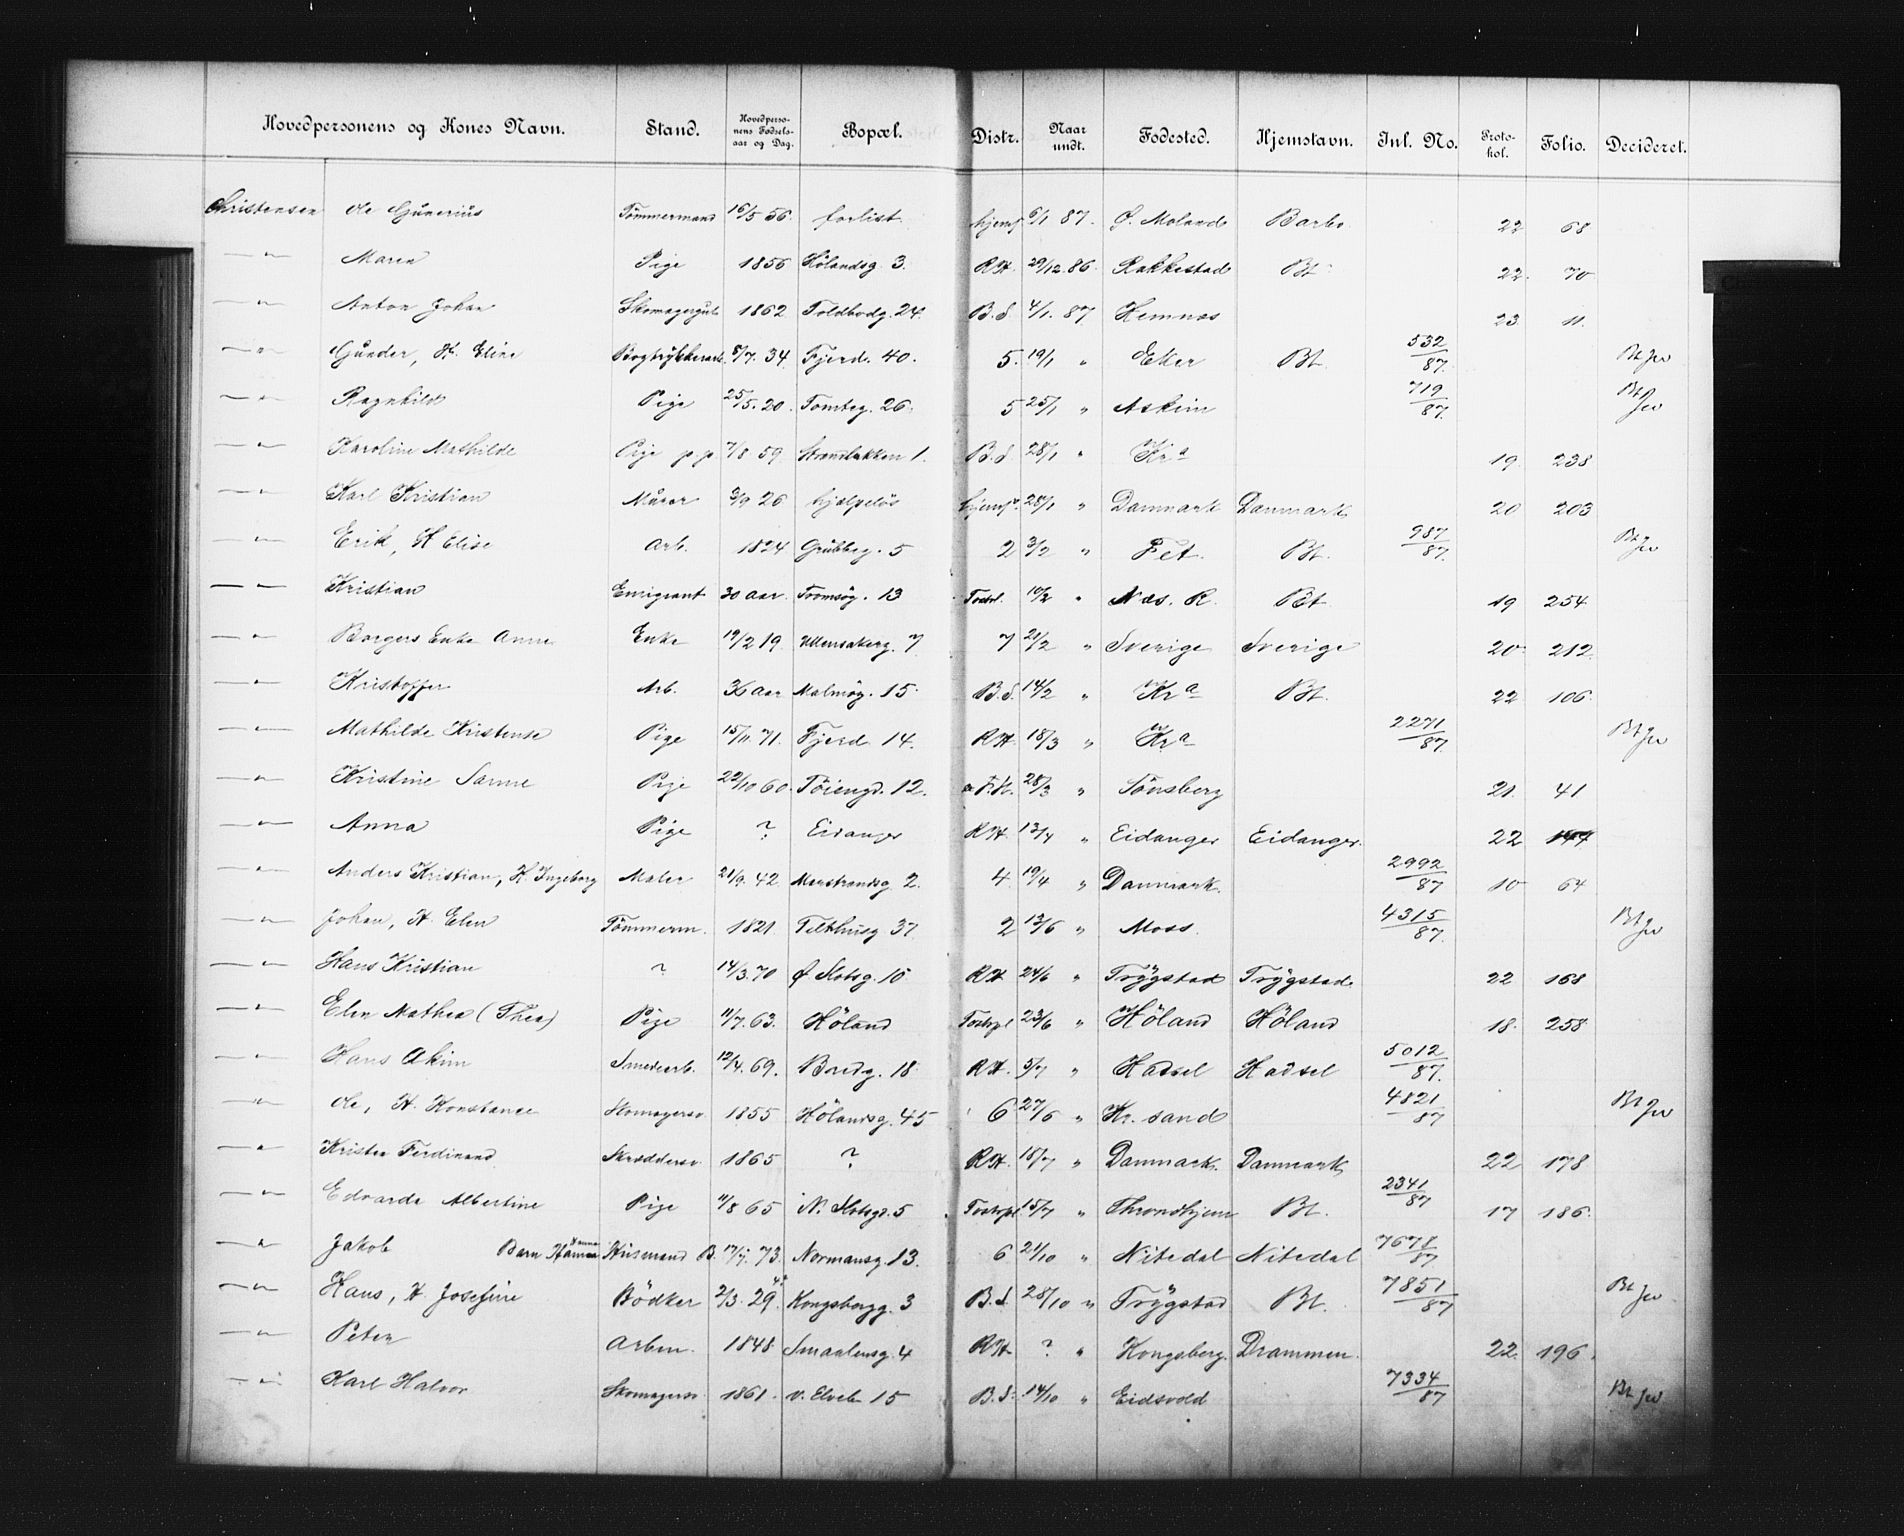 Hovedpersonens og Kones Navn. Stand. Hovedpersonens Fødselsaar og Dag. Bopæl. Distr. Naar undt. Fødested. Hjemstavn. Inl. No. Protokol. Folio. Decideret.
Christensen Ole Gunerius Tömmermand 16/5 56. forlist hjemf 6/1 87. Ø. Moland Barbo 22 68
—"— Maren Pige 1856 Hölandsg 3. RH. 29/12. 86. Rakkestad Bt 22. 70
—"— Anton Johan 1862 Toldbodg. 24. B.d. 4/1. 87 Hemnæs 23 11.
—"— Gunder, H. Eline Bogtrykkerarb. 8/7. 34 Fjerd. 40. 5. 19/1 " Eker Bt. 532/87.
—"— Ragnhild Pige 25/5. 20. Tomteg. 26. 5 25/1 " Askim 719/87.
—"— Karoline Mathilde Pige p.p. 7/8 59. 1. B.d. 28/1 " Kra 19. 238
—"— Karl Kristian Murer 3/9 26 hjælpelös hjemf. 28/1 " Danmark Danmark 20 203
—"— Erik, H Elise Arb. 1824 Grubbeg. 5 2 3/2 " Fet. Bt. 987/87.
—"— Kristian Emigrant 30 aar. Tromsög. 13 10/2 " Næs. R. Bt 19 254
—"— Borgers Enke Anne Enke 19/2 19. Ullensakerg. 7 7 21/2 " Sverige Sverige 20. 212.
—"— Kristoffer Arb. 36 aar Malmög. 15. B.d. 14/2 " Kra Bt. 22 106.
—"— Mathilde Kristense Pige 15/11. 71. Fjerd. 14. RH. 18/3 " Kra 2271/87.
—"— Kristine Pige 22/10 60. Töiengd. 12. 28/3 " Tönsberg 21. 41
—"— Anna Pige ? Eidanger RH 13/4 " Eidanger Eidanger. 22
—"— Anders Kristian, H. Ingeborg Maler 21/9. 42. Marstrandsg. 2. 4. 19/4 " Danmark. 2992/87 10 64
—"— Johan, H. Elen Tömmerm. 1821. Telthusg 37 2 13/6 " Moss. 4315/87.
—"— Hans Kristian ? 14/3. 70 Ø Slotsg. 10 RH 24/6 " Trygstad Trygstad. 22 168
—"— Elen Mathea (Thea) Pige 11/7. 63. Höland 23/6 " Höland Höland 18. 258
—"— Hans Akim Smedearb. 12/4. 69. Bredg. 18 RH. 5/7 " Hadsel Hadsel 5012/87.
—"— Ole, H. Konstance Skomagersv. 1855 Hölandsg. 45 6 27/6 " Kr. sand 4821/87
—"— Kristen Ferdinand Skræddersv. 1865 ? RH. 18/7 " Danmark. Danmark 22 178
—"— Edvarda Albertine Pige 11/8 65 N. Slotsgd. 5 15/7 " Throndhjem Bt. 2341/87 17 186.
—"— Jakob Barn Hanna Husmand B. 17/7. 73. Normansg. 13. 6 21/10 " Nitedal Nitedal 7678/87
—"— Hans, H. Josefine Bödker 2/3. 29. Kongsbergg. 3 B.d. 28/10 " Trygstad Bt. 7851/87
—"— Peter Arbm. 1848 Smaalensg. 4 RH ? " Kongsberg. Drammen. 22. 196.
—"— Karl Halvor Skomagersv. 1861. v. Elveb. 15 B.d. 14/10 " Eidsvold 7334/87